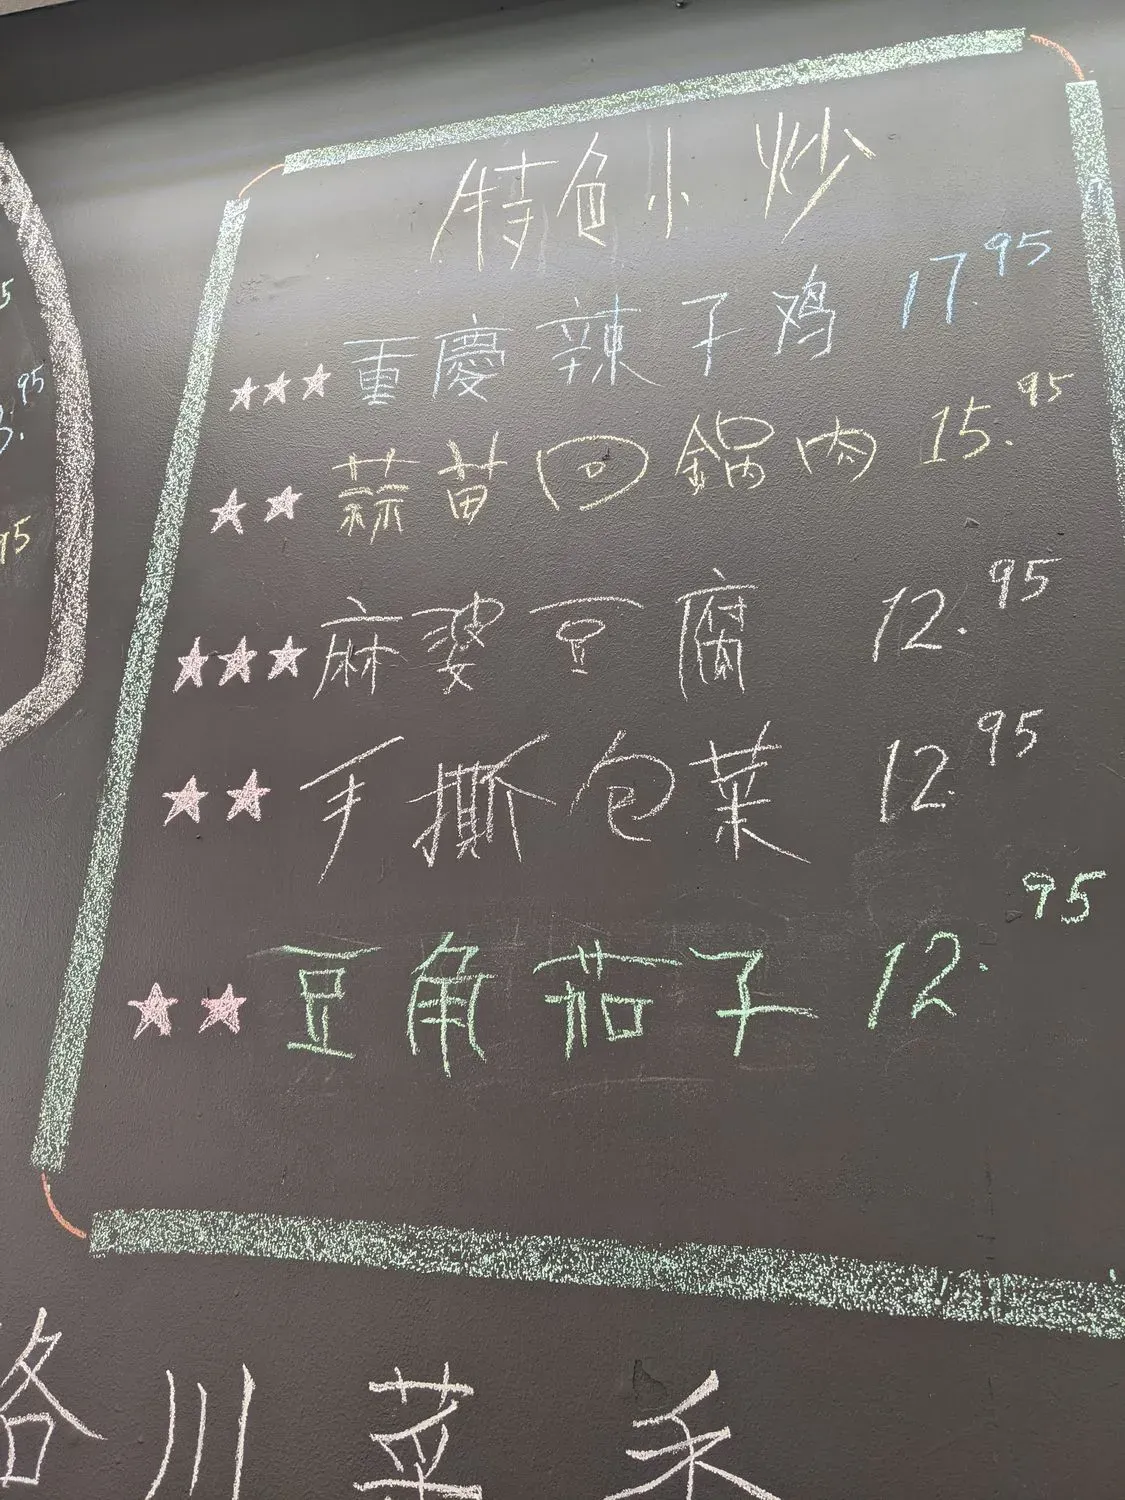 特色小炒
★★★重慶辣子鸡 17.95
★★蒜苗回鍋肉 15.95
★★★麻婆豆腐 12.95
★★手撕包菜 12.95
★★豆角茄子 12.95
川菜